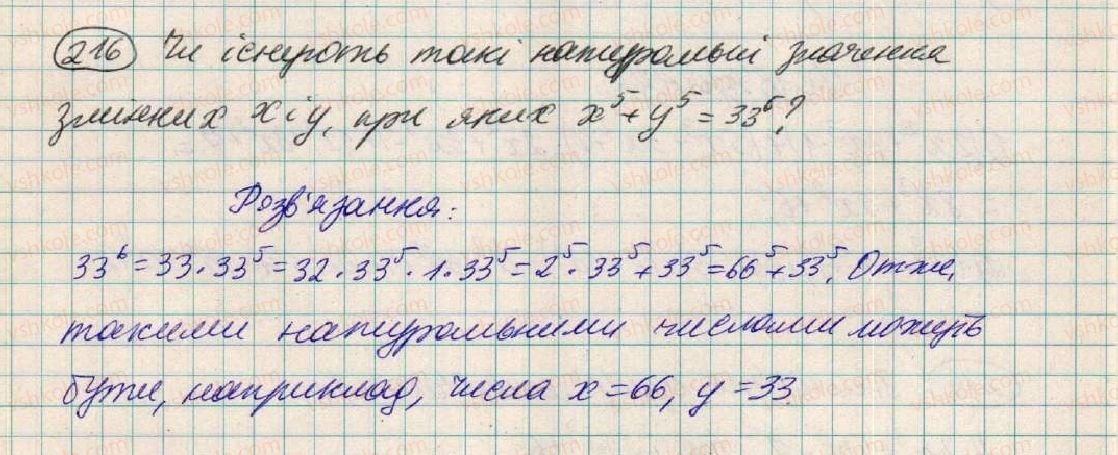 216 Чи існують такі натуральні значення
змінних x і y, при яких x⁵ + y⁵ = 33⁶?
Розв'язання:
33⁶ = 33 · 33⁵ = 32 · 33⁵ · 1 · 33⁵ = 2⁵ · 33⁵ + 33⁵ = 66⁵ + 33⁵. Отже,
такими натуральними числами можуть
бути, наприклад, числа x = 66, y = 33